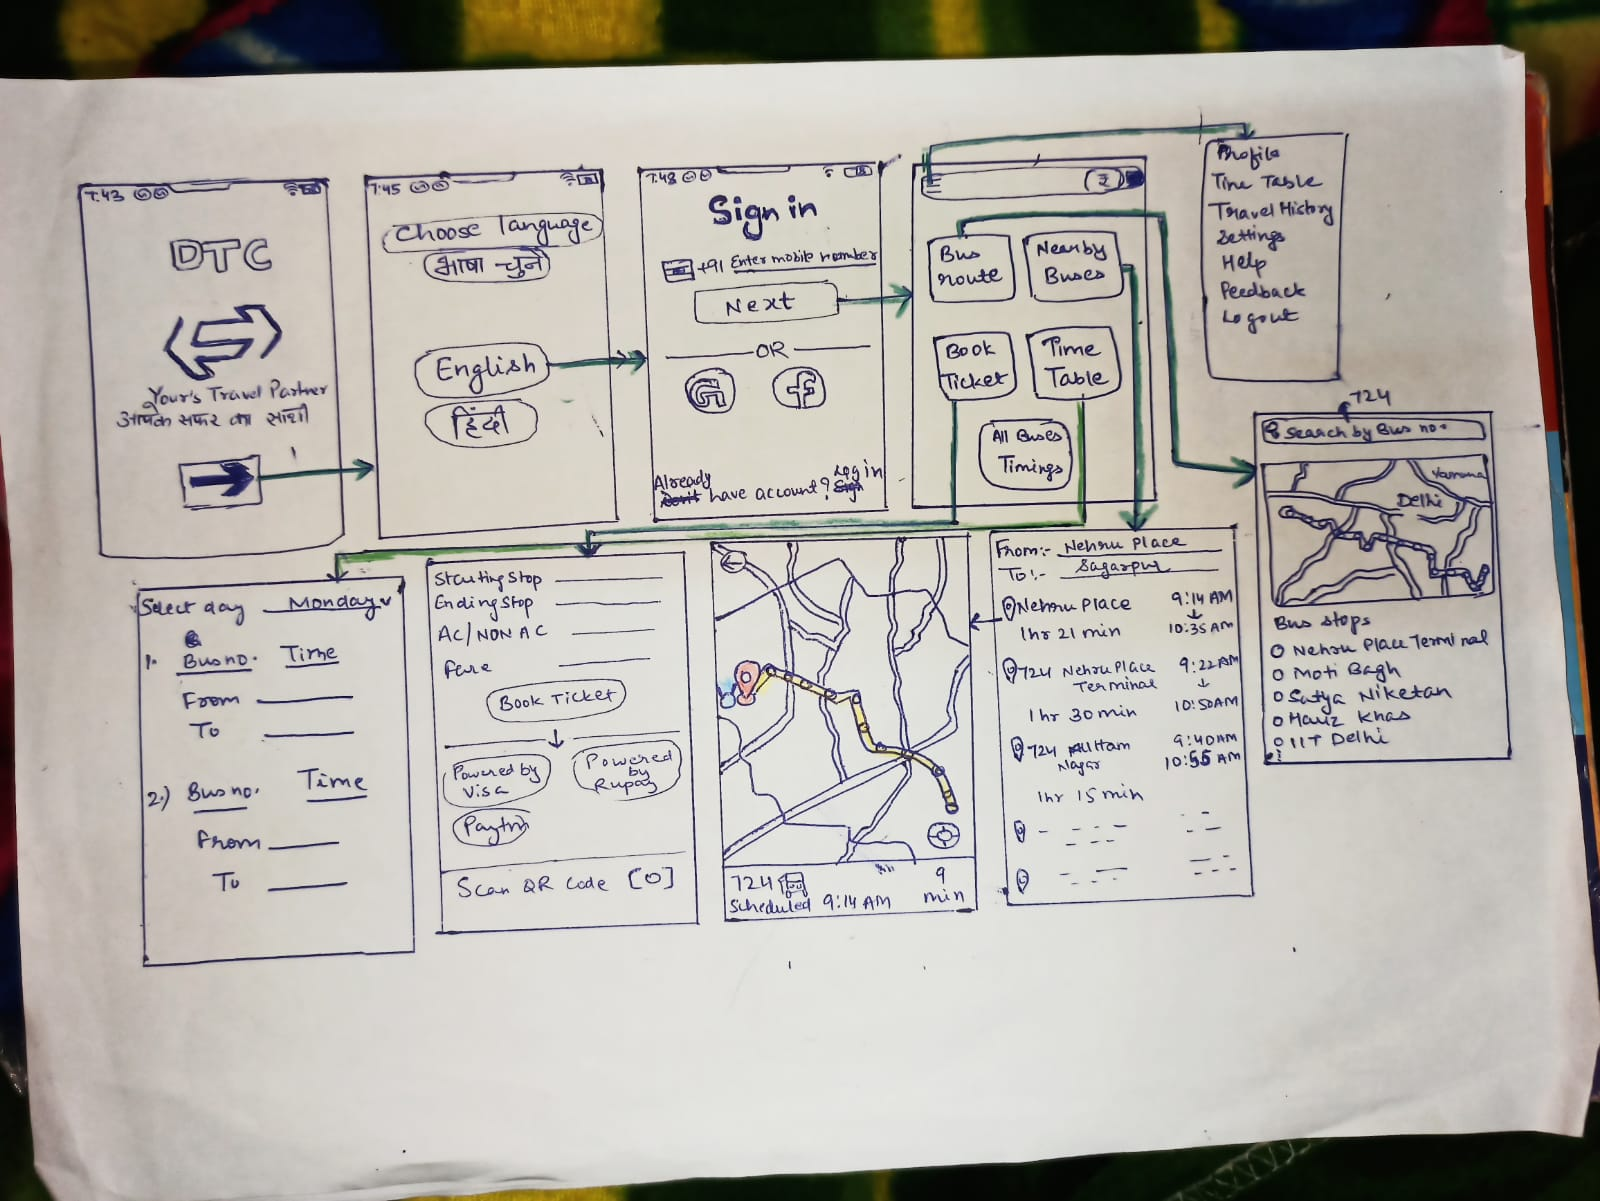 7:43
DTC
Your's Travel Partner
आपके सफर का साथी
7:45
Choose language
भाषा चुनें
English
हिंदी
7:48
Sign in
+91 Enter mobile number
Next
OR
G f
Already have account? Log in
₹
Bus route
Nearby Buses
Book Ticket
Time Table
All Buses Timings
Profile
Time Table
Travel History
Settings
Help
Feedback
Logout
724
Search by Bus no.
Yamuna
Delhi
Bus stops
Nehru Place Terminal
Moti Bagh
Satya Niketan
Hauz Khas
IIT Delhi
Select day Monday
1. Bus no. Time
From
To
2.) Bus no. Time
From
To
Starting Stop
Ending Stop
AC/NON AC
Fare
Book Ticket
Powered by Visa
Powered by Rupay
Paytm
Scan QR Code
724 9
Scheduled 9:14 AM min
From:- Nehru Place
To:- Sagarpur
Nehru Place 9:14 AM
1hr 21 min 10:35 AM
724 Nehru Place 9:22AM
Terminal
1hr 30 min 10:50AM
724 Uttam 9:40AM
Nagar 10:55 AM
1hr 15 min